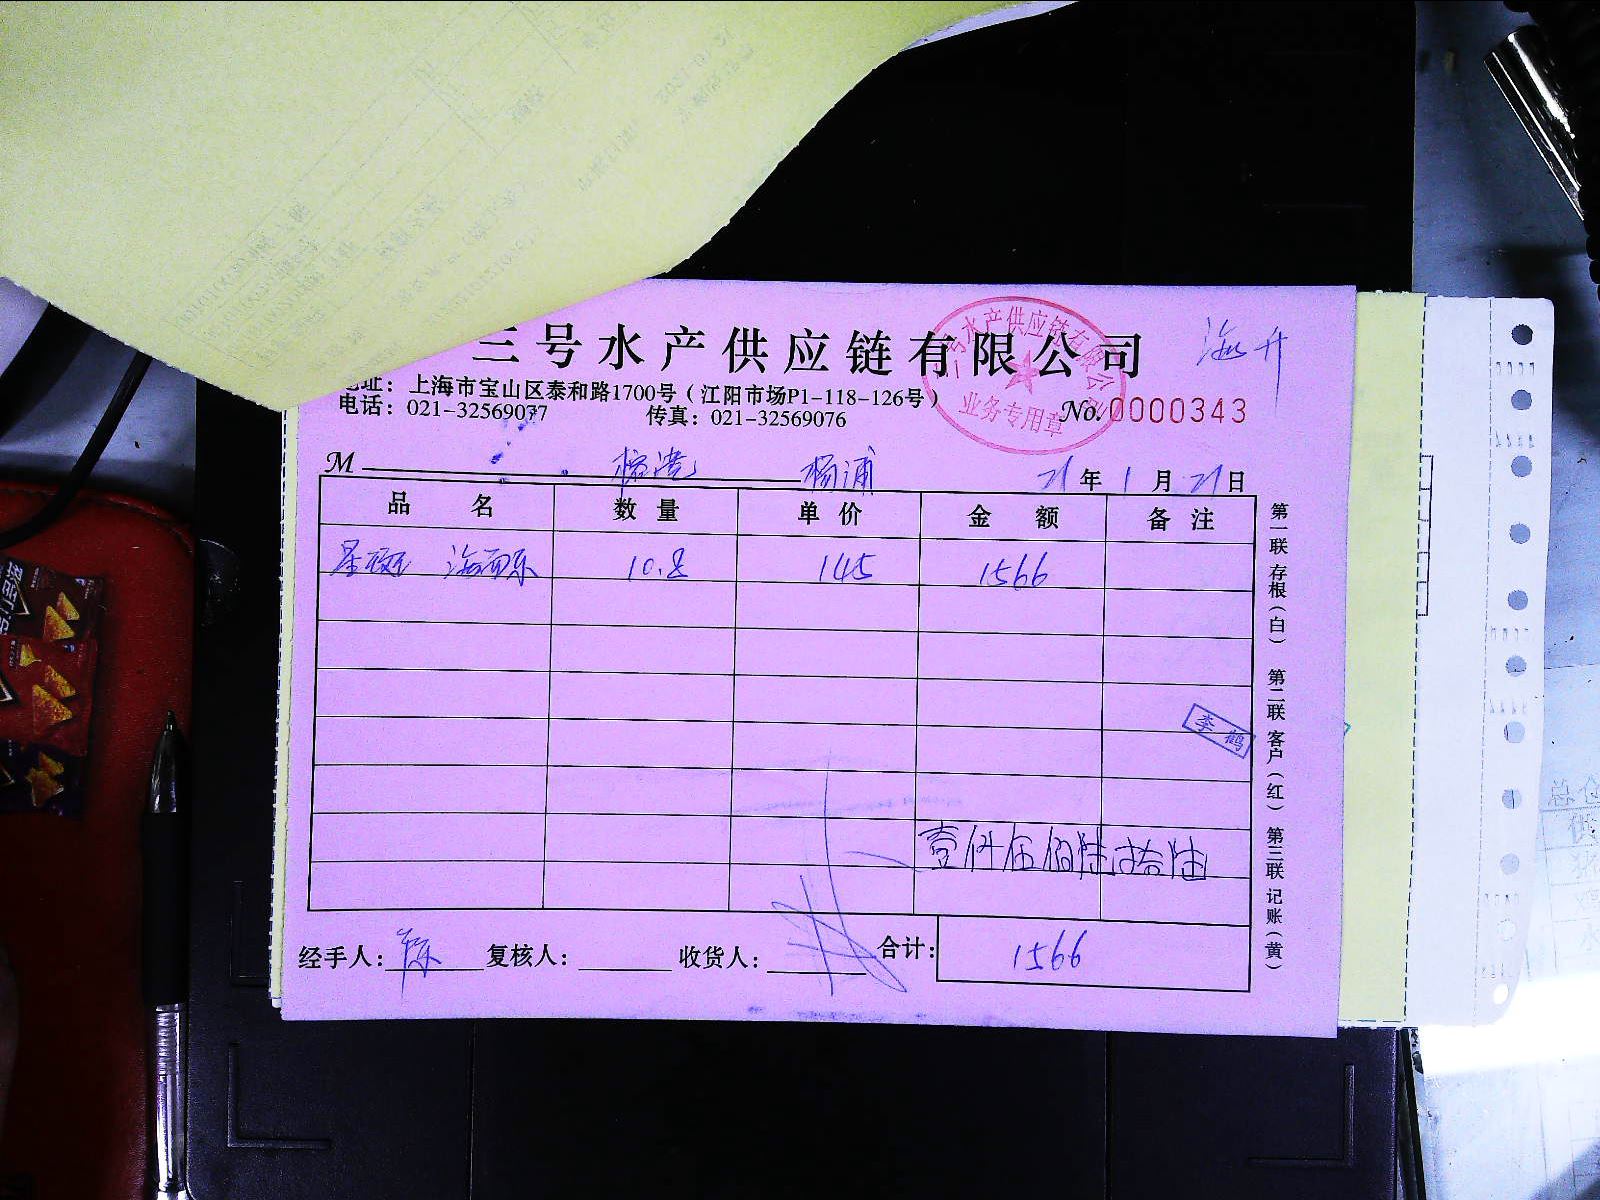 三号水产供应链有限公司
海升
地址：上海市宝山区泰和路1700号（江阳市场P1-118-126号）
电话：021-32569077 传真：021-32569076
三号水产供应链有限公司
业务专用章
No. 0000343
M 杨浦 21年1月21日
品名 数量 单价 金额 备注
星斑 10.8 145 1566
李鹤
壹仟伍佰陆拾陆
经手人：陈 复核人： 收货人： 合计：1566
第一联 存根（白） 第二联 客户（红） 第三联 记账（黄）